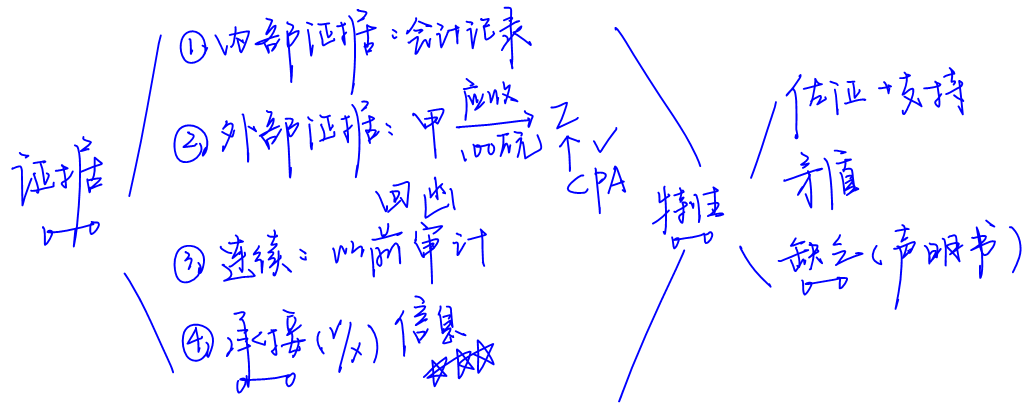 证据
① 内部证据：会计记录
② 外部证据：甲 应收 100万元 乙
↑ ✓
CPA
回函
③ 连续：以前审计
④ 承接(√/×)信息
☆☆☆
特性
佐证+支持
矛盾
缺乏(声明书)